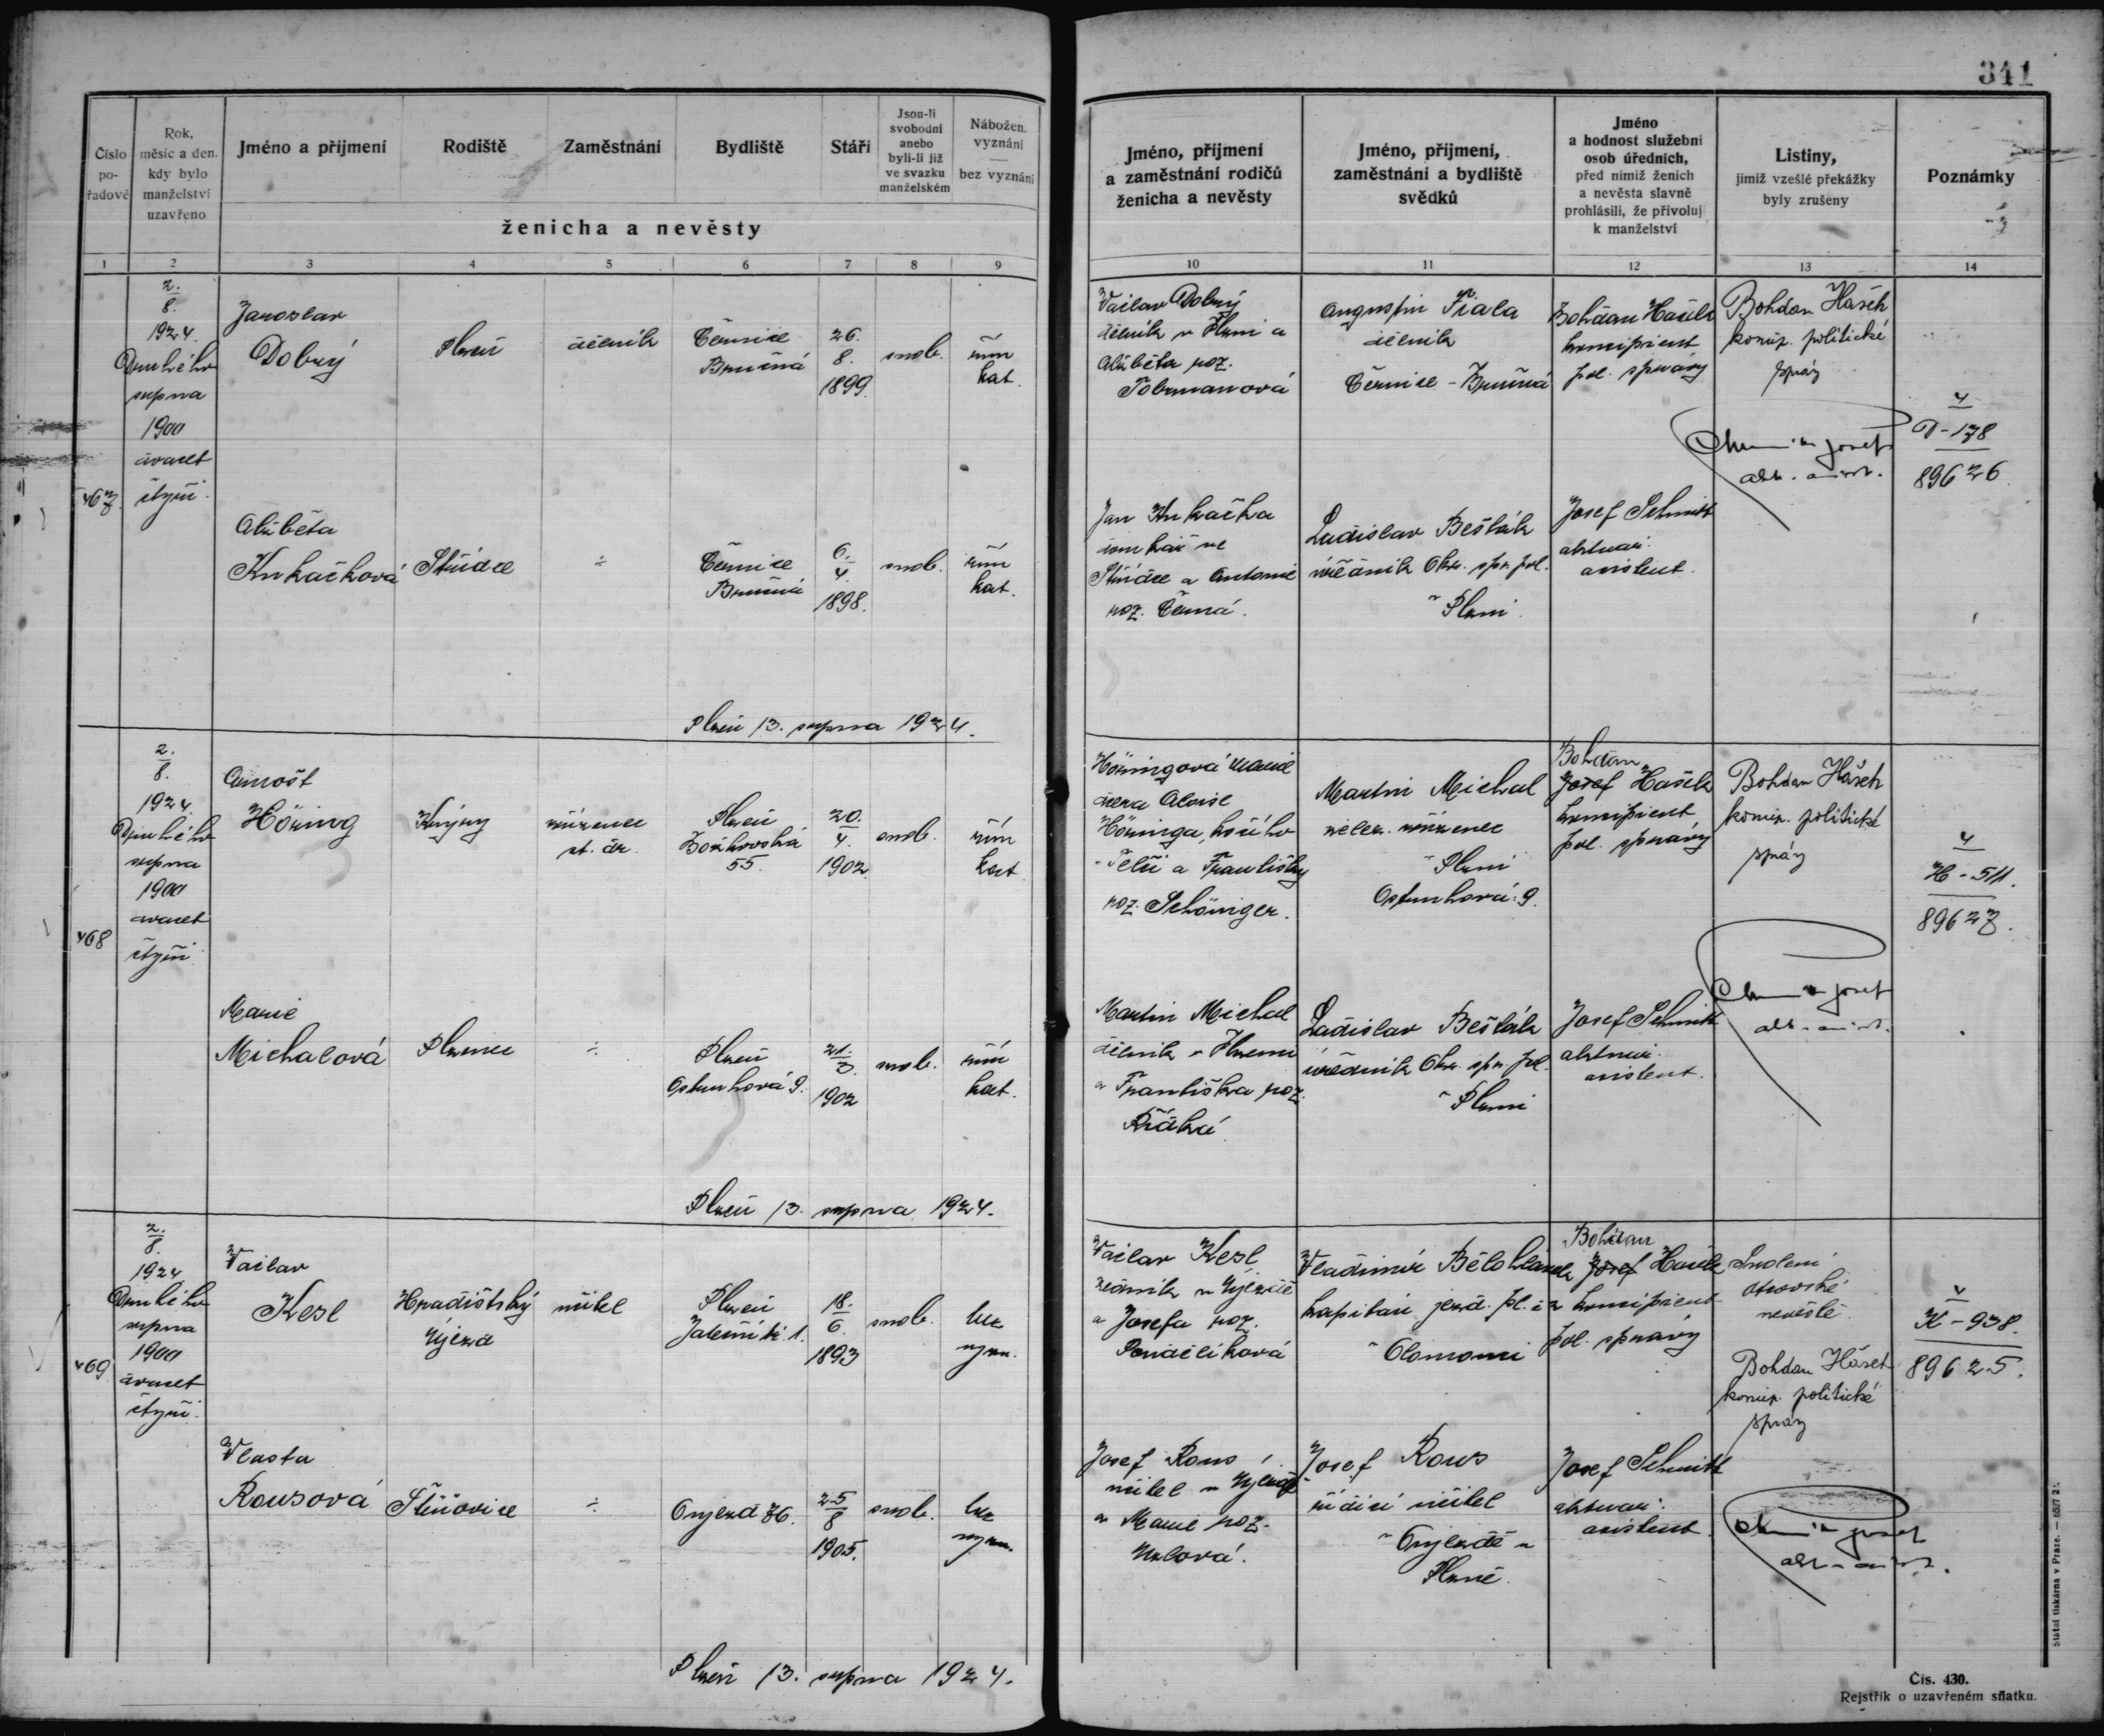 341
Číslo
po-
řadové
Rok,
měsíc a den.
kdy bylo
manželství
uzavřeno
Jméno a příjmení
Rodiště
Zaměstnání
Bydliště
Stáří
Jsou-li
svobodni
anebo
byli-li již
ve svazku
manželském
Nábožen.
vyznání
bez vyznání
ženicha a nevěsty
Jméno, příjmení
a zaměstnání rodičů
ženicha a nevěsty
Jméno, příjmení,
zaměstnání a bydliště
svědků
Jméno
a hodnost služební
osob úředních,
před nimiž ženich
a nevěsta slavně
prohlásili, že přivolují
k manželství
Listiny,
jimiž vzešlé překážky
byly zrušeny
Poznámky
1 2 3 4 5 6 7 8 9
10 11 12 13 14
467
2.
8.
1924.
Druhého
srpna
1900
dvacet
čtyři.
Jaroslav
Dobrý
Plzeň
dělník
Černice
Bručná
26.
8.
1899.
svob.
řím
kat.
Václav Dobrý
dělník v Plzni a
Alžběta roz.
Augustin Fiala
dělník
Černice - Bručná
Bohdan Hašek
koncipient
pol. správy
Bohdan Hašek
koncip. politické
správy
4
D-178
89626
Alžběta
Krkačková
Střídce
÷
Černice
Bručná
6.
4.
1898.
svob.
řím
kat.
Jan Krkačka
domkář ve
Střídce a Antonie
roz. Černá.
Ladislav Bešťák
úředník Okr. spr. pol.
v Plzni.
Josef Schmidt
aktuár.
asistent.
Plzeň 13. srpna 1924.
468
2.
8.
1924.
Druhého
srpna
1900
dvacet
čtyři.
Arnošt
Höning
zřízenec
st. dr.
Plzeň
55.
20.
4.
1902
svob.
řím
kat
Höningová Marie
dcera Aloise
Höninga
a Františky
roz. Schöniger.
Martin Michal
želez. zřízenec
v Plzni
9.
Bohdan
Josef Hašek
koncipient
pol. správy
Bohdan Hašek
koncip. politické
správy
4
H-511.
89627.
Marie
Michalová
Plzenec
÷
Plzeň
9.
21.
3.
1902
svob.
řím
kat.
Martin Michal
dělník v Plzenci
a Františka roz.
Řídká
Ladislav Bešťák
úředník Okr. spr. pol.
v Plzni
Josef Schmidt
aktuár.
asistent.
Plzeň 13. srpna 1924.
469
2.
8.
1924
Druhého
srpna
1900
dvacet
čtyři.
Václav
Kesl
Hradištský
Újezd
učitel
Plzeň
1.
18.
6.
1893
svob.
bez
vyzn.
Václav Kesl
v Újezdě
a Josefa roz.
Pondělíková
Vladimír Bělohlávek
kapitán jezd. pl. č 2
v Olomouci
Bohdan
Josef Hašek
koncipient
pol. správy
Svolení
otcovské
nevěstě.
Bohdan Hašek
koncip. politické
správy
4
K-938.
89625.
Vlasta
Rousová
Štěňovice
÷
Oujezd 76.
25
8
1905.
svob.
bez
vyzn.
Josef Rous
učitel v Újezdě
a Marie roz.
Josef Rous
řídící učitel
v Oujezdě u
Plzně.
Josef Schmidt
aktuár.
asistent.
Plzeň 13. srpna 1924.
Čís. 430.
Rejstřík o uzavřeném sňatku.